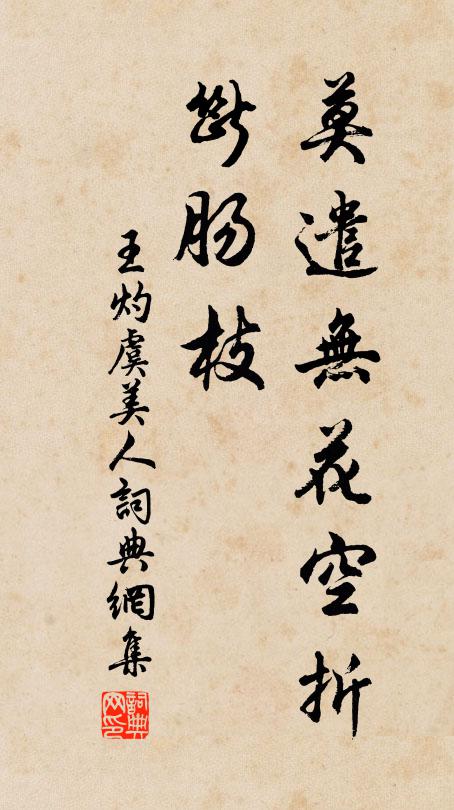 莫遣無花空折
斷腸枝
王灼虞美人詞典網集
詞典网印